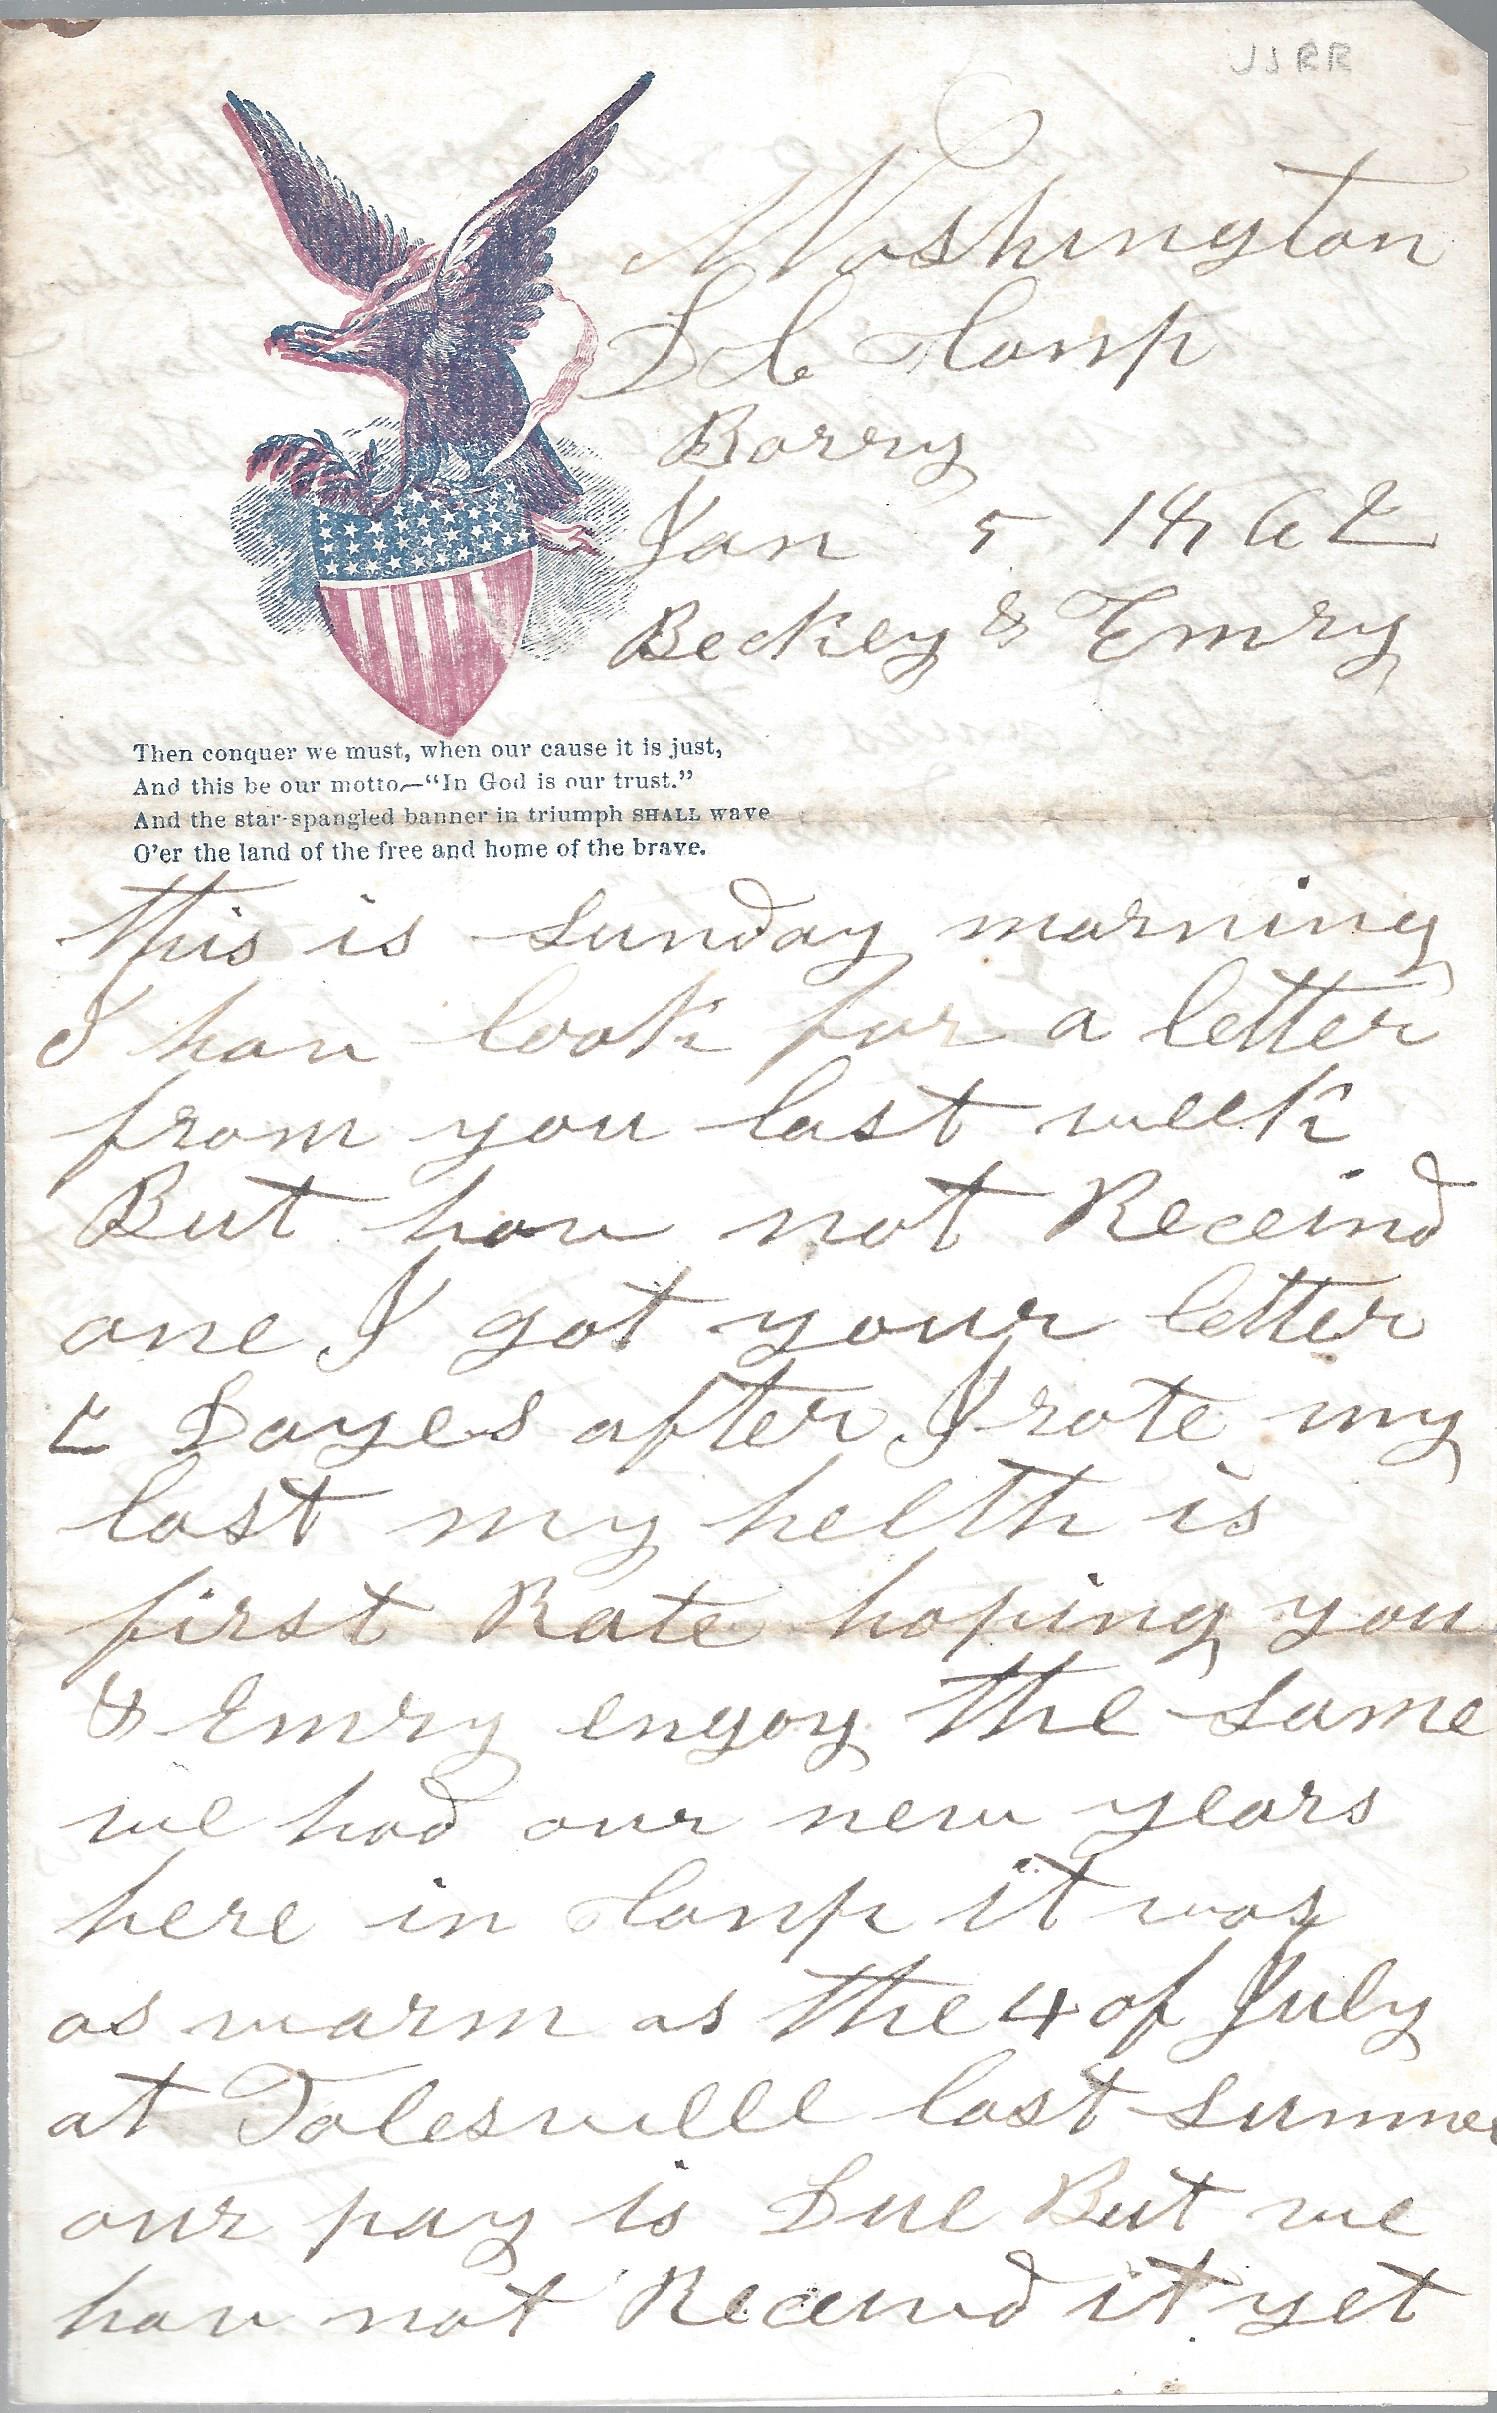 Washington
D C Camp
Barry
Jan 5 1862
Beckey & Emry
Then conquer we must, when our cause it is just,
And this be our motto,—“In God is our trust.”
And the star-spangled banner in triumph SHALL wave
O’er the land of the free and home of the brave.
this is Sunday morning
I hav look for a letter
from you last week
But hav not Receivd
one I got your letter
2 Dayes after I rote my
last my helth is
first Rate hoping you
& Emry engoy the same
we had our new years
here in Camp it was
as warm as the 4 of July
at Tolesvill last summer
our pay is Due But we
hav not Receivd it yet